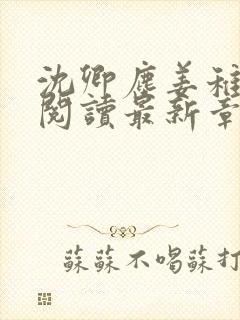 沈卿塵姜稚
閱讀最新章
蘇蘇不喝蘇打